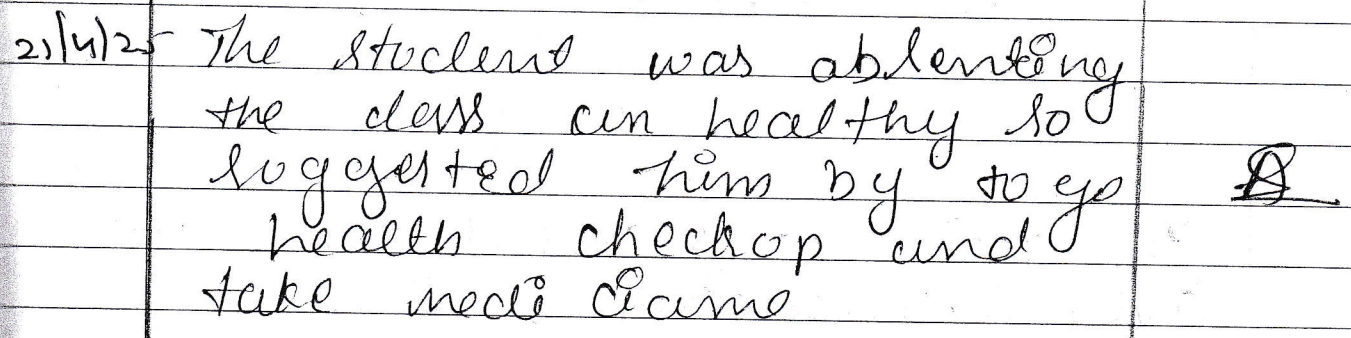 21/4/25 The student was absenting
the class un healthy so
suggested him by to go
health checkup and
take medi ciame